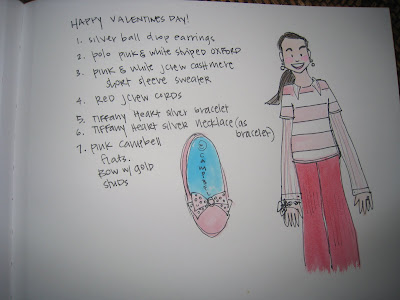 HAPPY VALENTINES DAY!
1. silver ball drop earrings
2. polo pink & white striped OXFORD
3. pink & white jcrew cashmere
short sleeve sweater
4. RED jcrew cords
5. Tiffany Heart silver bracelet
6. Tiffany Heart silver necklace (as
bracelet)
7. pink camebell
flats.
BOW w/ gold
studs